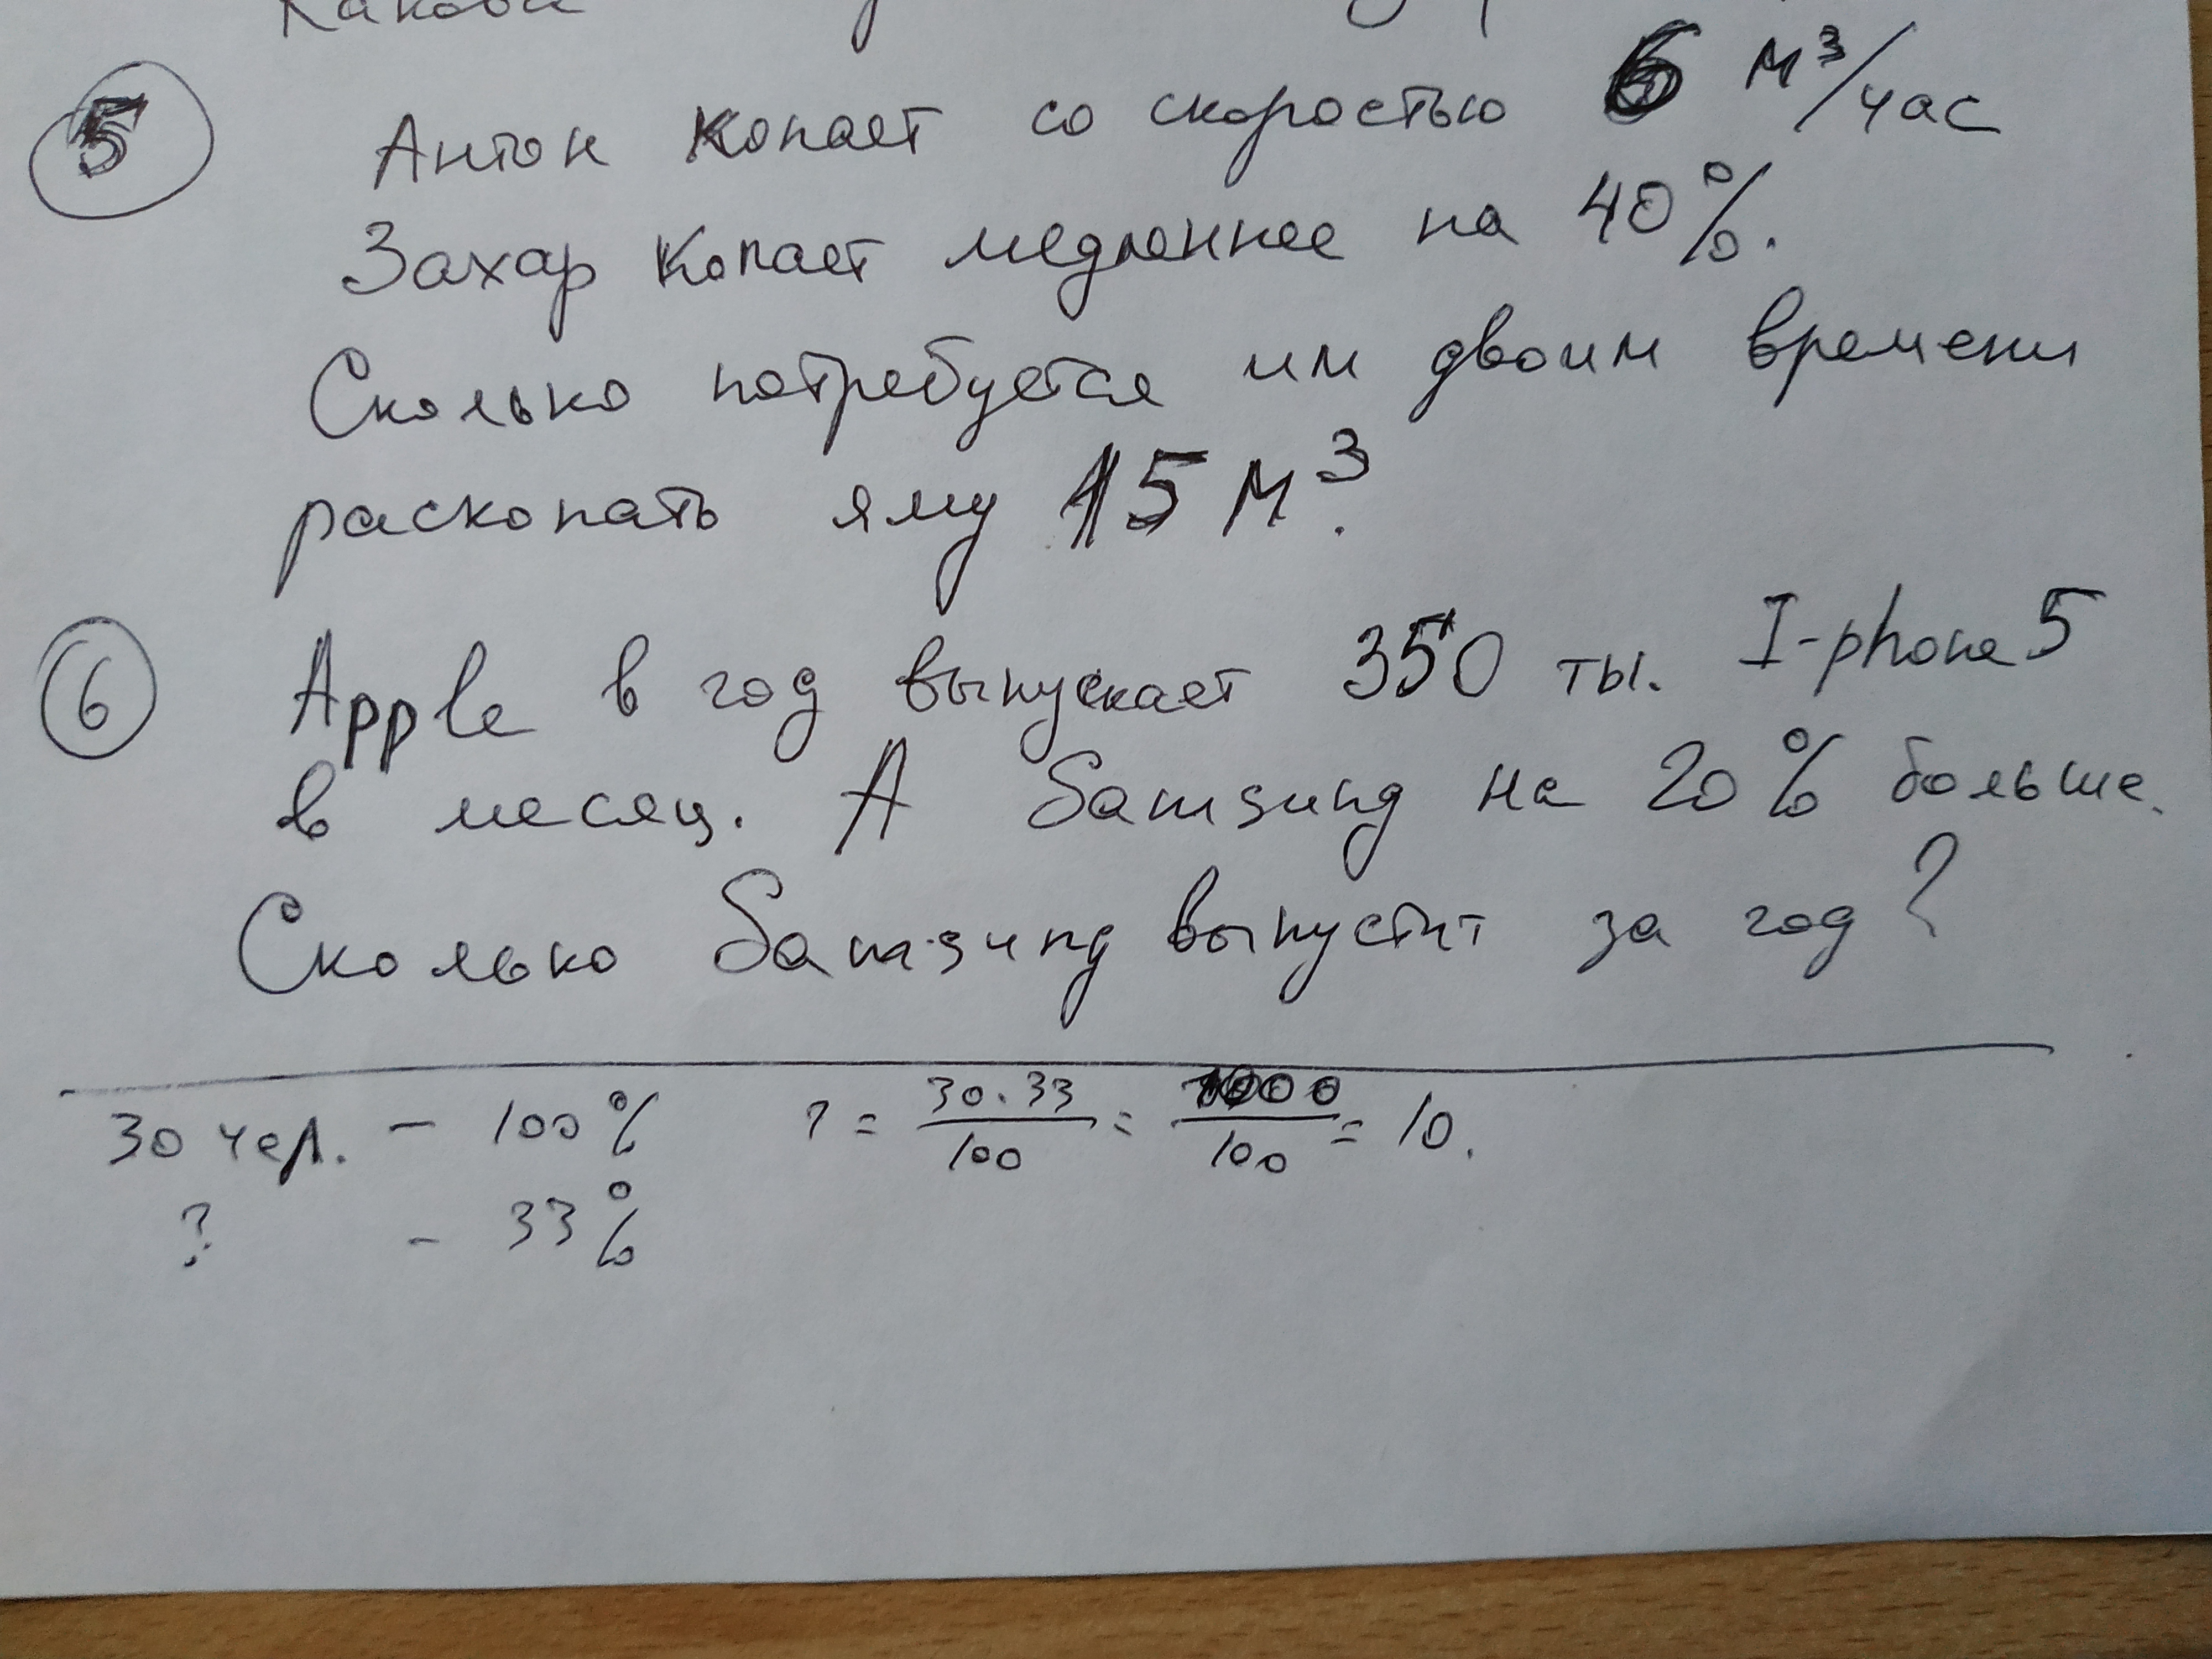 5 Антон копает со скоростью 6 м³/час
Захар копает медленнее на 40%.
Сколько потребуется им двоим времени
раскопать яму 15 м³.
6 Apple в год выпускает 350 ты. I-phone 5
в месяц. А Samsung на 20% больше.
Сколько Samsung выпустит за год?
30 чел. - 100% ? = 30.33/100 = 1000/100 = 10.
? - 33%